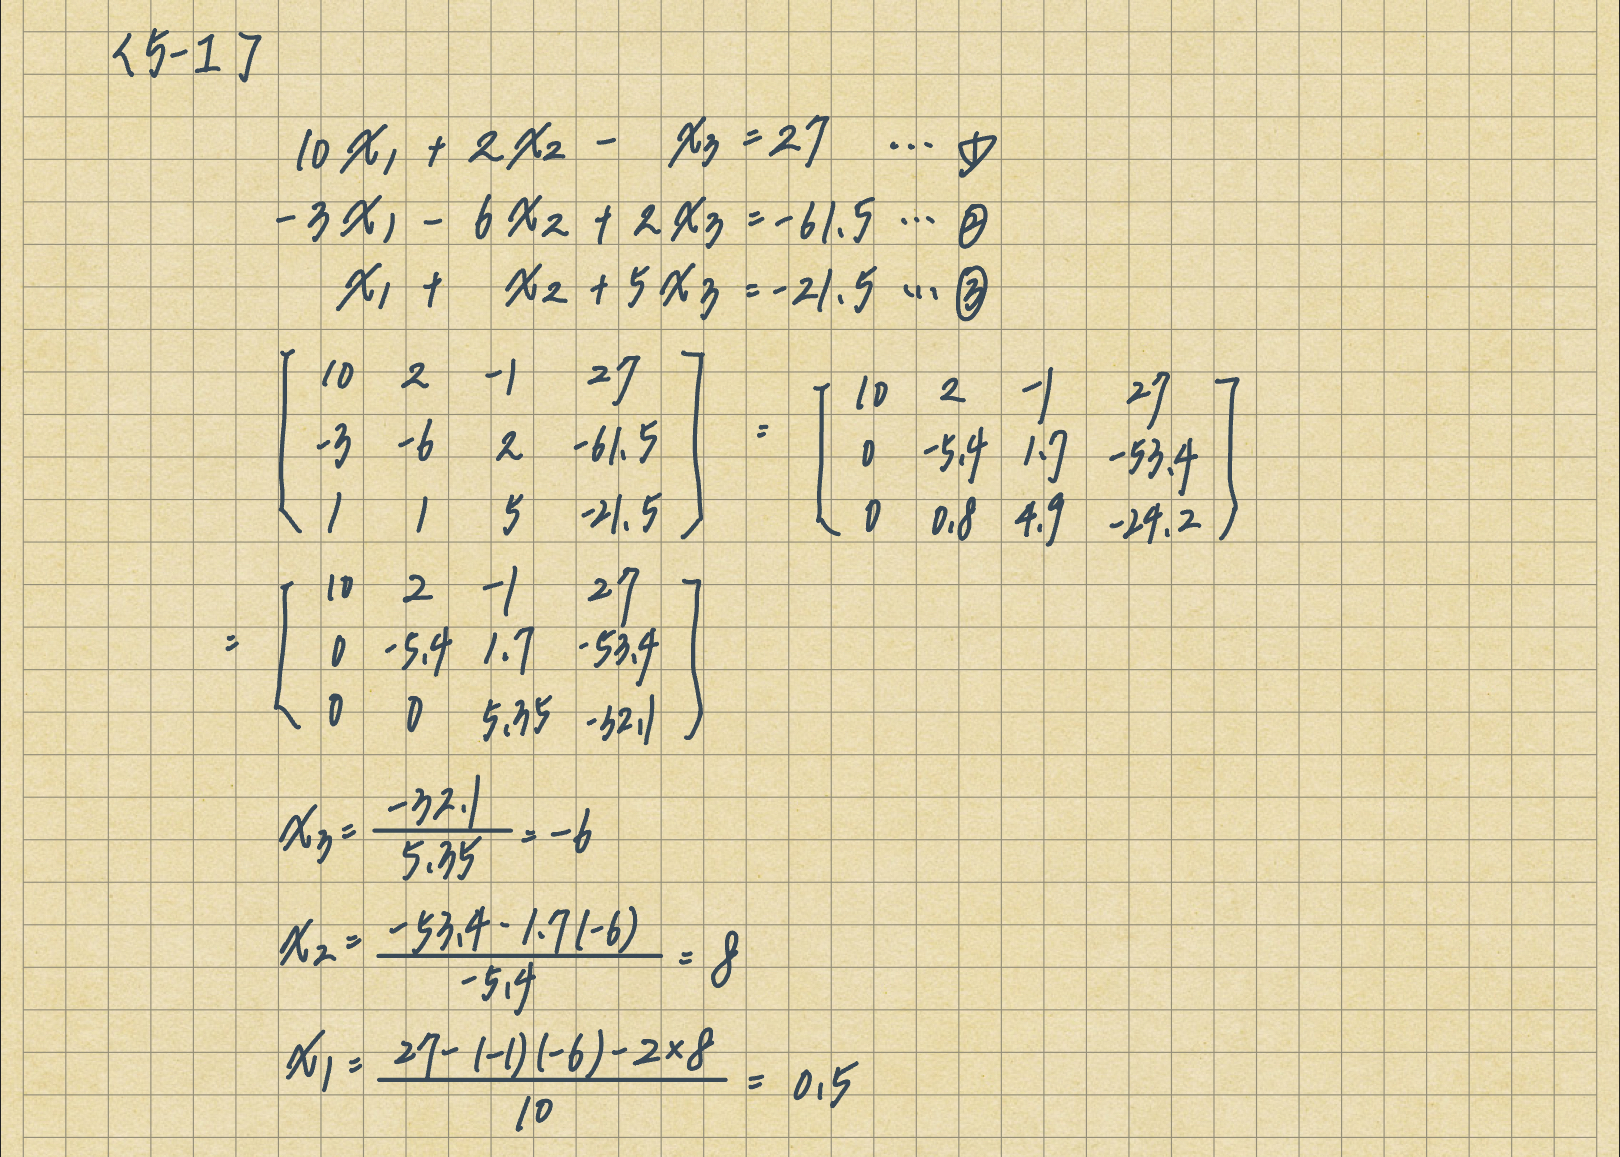 <5-1>
10x₁ + 2x₂ - x₃ = 27 ... ①
-3x₁ - 6x₂ + 2x₃ = -61.5 ... ②
x₁ + x₂ + 5x₃ = -21.5 ... ③
[10 2 -1 27; -3 -6 2 -61.5; 1 1 5 -21.5] = [10 2 -1 27; 0 -5.4 1.7 -53.4; 0 0.8 4.9 -24.2]
= [10 2 -1 27; 0 -5.4 1.7 -53.4; 0 0 5.35 -32.1]
x₃ = -32.1 / 5.35 = -6
x₂ = -53.4 - 1.7(-6) / -5.4 = 8
x₁ = 27 - (-1)(-6) - 2×8 / 10 = 0.5